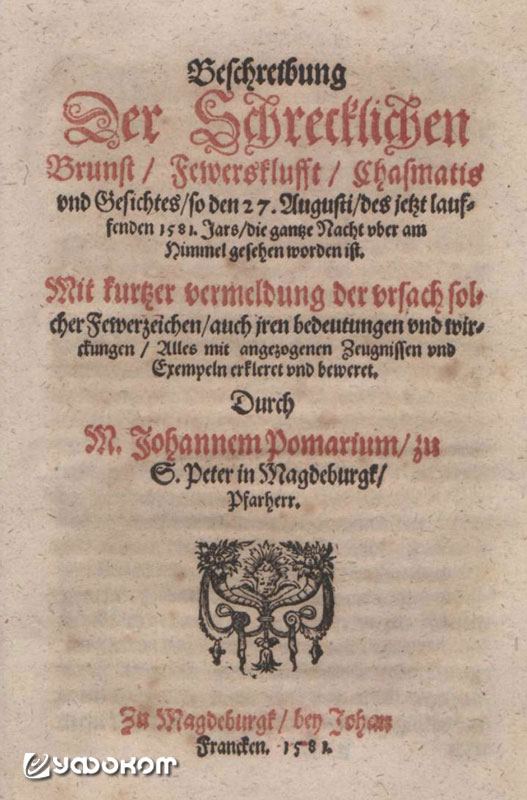 Beschreibung
Der Schrecklichen
Brunst / Fewersklufft / Chasmatis
vnd Gesichtes/so den 27. Augusti/des jetzt lauf-
fenden 1581. Jars/die gantze Nacht vber am
Himmel gesehen worden ist.
Mit kurtzer vermeldung der vrsach sol-
cher Fewerzeichen/auch jren bedeutungen vnd wir-
ckungen / Alles mit angezogenen Zeugnissen vnd
Exempeln erkleret vnd beweret.
Durch
M. Johannem Pomarium/ zu
S. Peter in Magdeburgk/
Pfarherr.
Zu Magdeburgk/ bey Johan
Francken. 1581.
уфоком